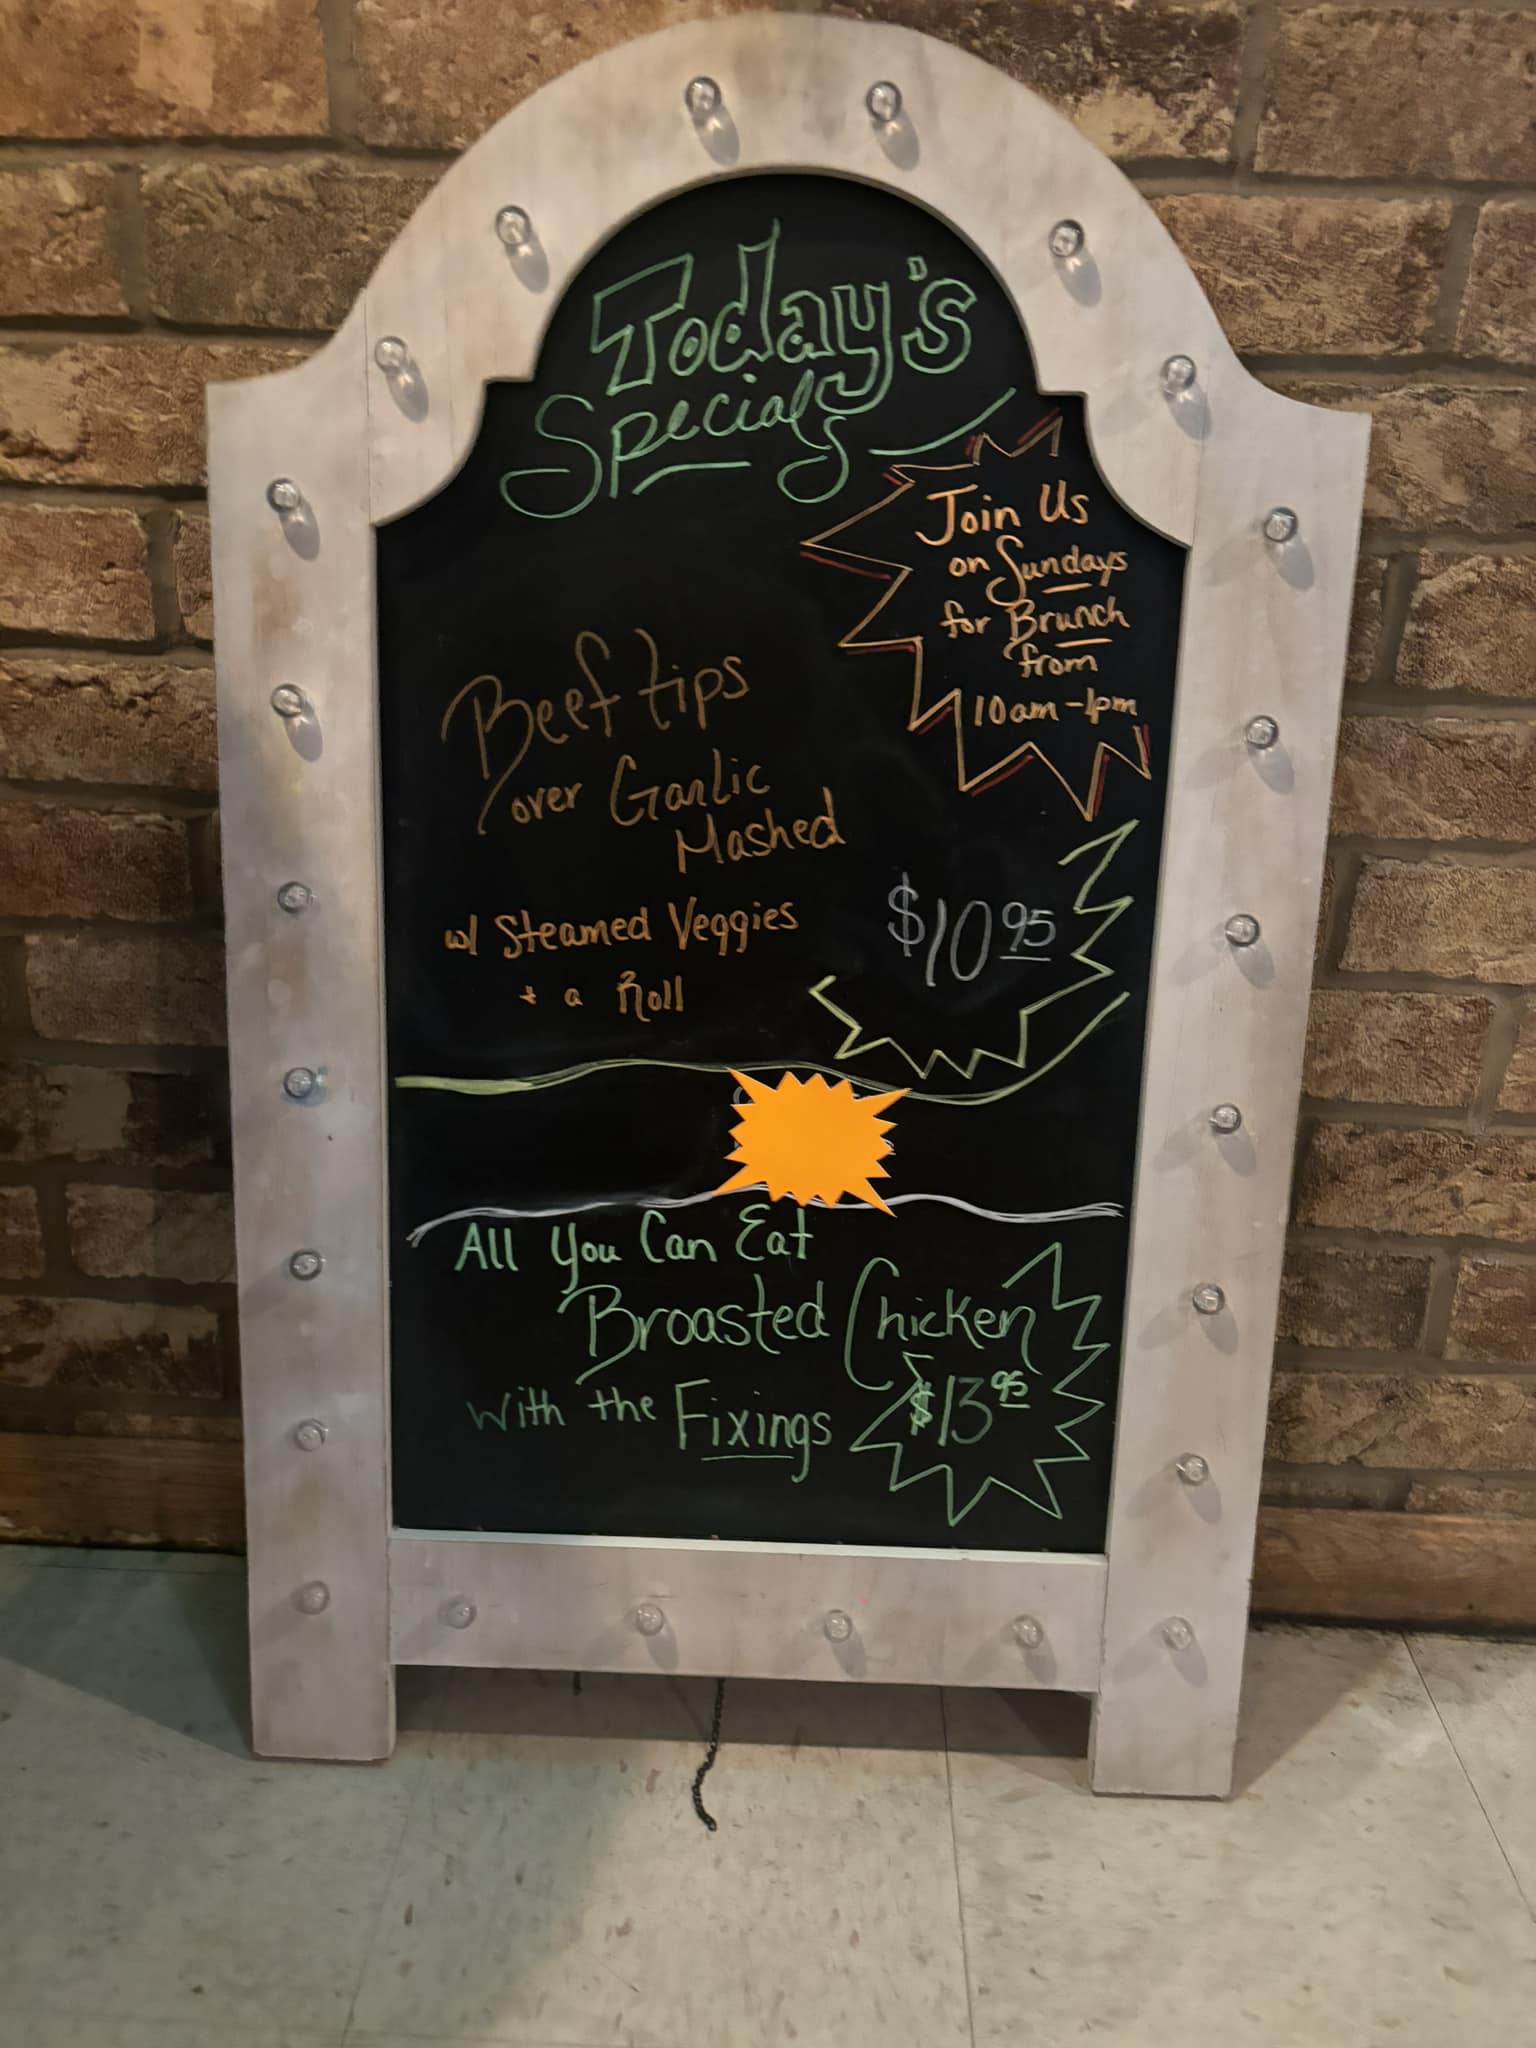 Today's
Specials
Join Us
on Sundays
for Brunch
from
10am-1pm
Beef tips
over Garlic
Mashed
w/ Steamed Veggies
+ a Roll
$10 95
All You Can Eat
Broasted Chicken
with the Fixings
$13 95